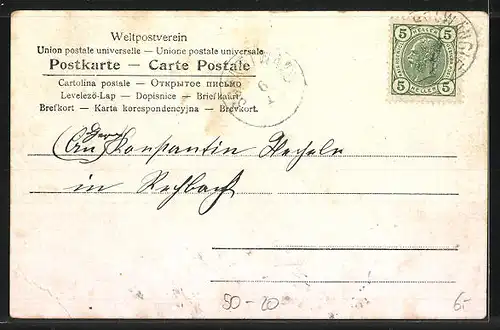 Weltpostverein
Union postale universelle – Unione postale universale
Postkarte – Carte Postale
Cartolina postale – Открытое письмо
Levelező-Lap – Dopisnice – Briefkaart
Brefkort – Karta korespondencyjna – Brevkort.
5 HELLER 5
5 HELLER 5
6
1
An Herrn Konstantin
in
50-20
6-